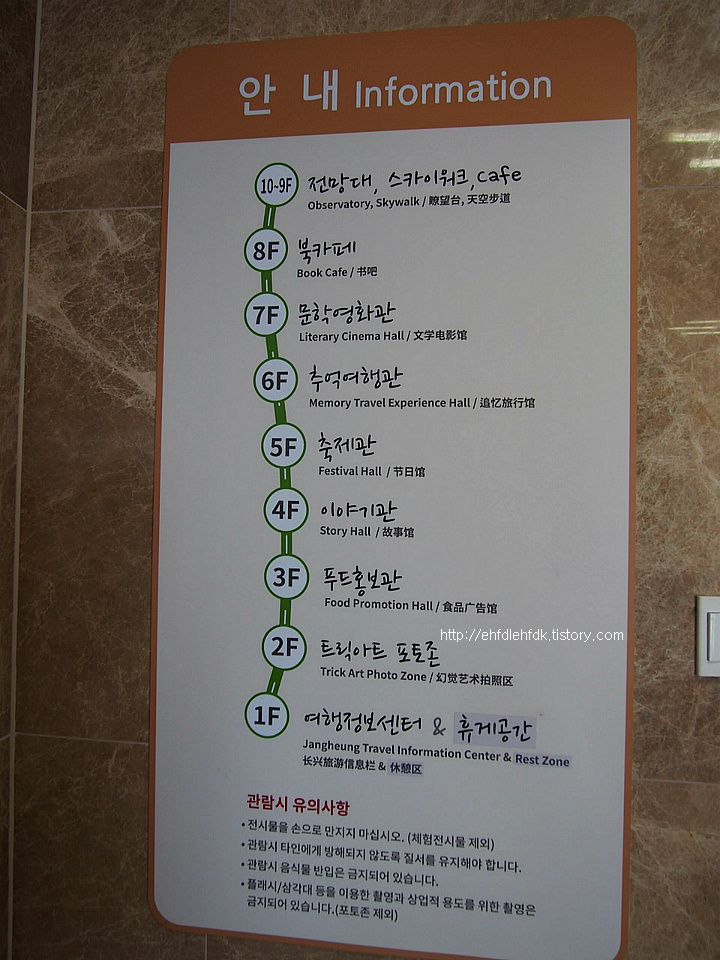 안 내 Information
10~9F 전망대, 스카이워크, cafe
Observatory, Skywalk / 瞭望台, 天空步道
8F 북카페
Book Cafe / 书吧
7F 문학영화관
Literary Cinema Hall / 文学电影馆
6F 추억여행관
Memory Travel Experience Hall / 追忆旅行馆
5F 축제관
Festival Hall / 节日馆
4F 이야기관
Story Hall / 故事馆
3F 푸드홍보관
Food Promotion Hall / 食品广告馆
http://ehfdlehfdk.tistory.com
2F 트릭아트 포토존
Trick Art Photo Zone / 幻觉艺术拍照区
1F 여행정보센터 & 휴게공간
Jangheung Travel Information Center & Rest Zone
长兴旅游信息栏 & 休憩区
관람시 유의사항
• 전시물을 손으로 만지지 마십시오. (체험전시물 제외)
• 관람시 타인에게 방해되지 않도록 질서를 유지해야 합니다.
• 관람시 음식물 반입은 금지되어 있습니다.
• 플래시/삼각대 등을 이용한 촬영과 상업적 용도를 위한 촬영은
금지되어 있습니다.(포토존 제외)